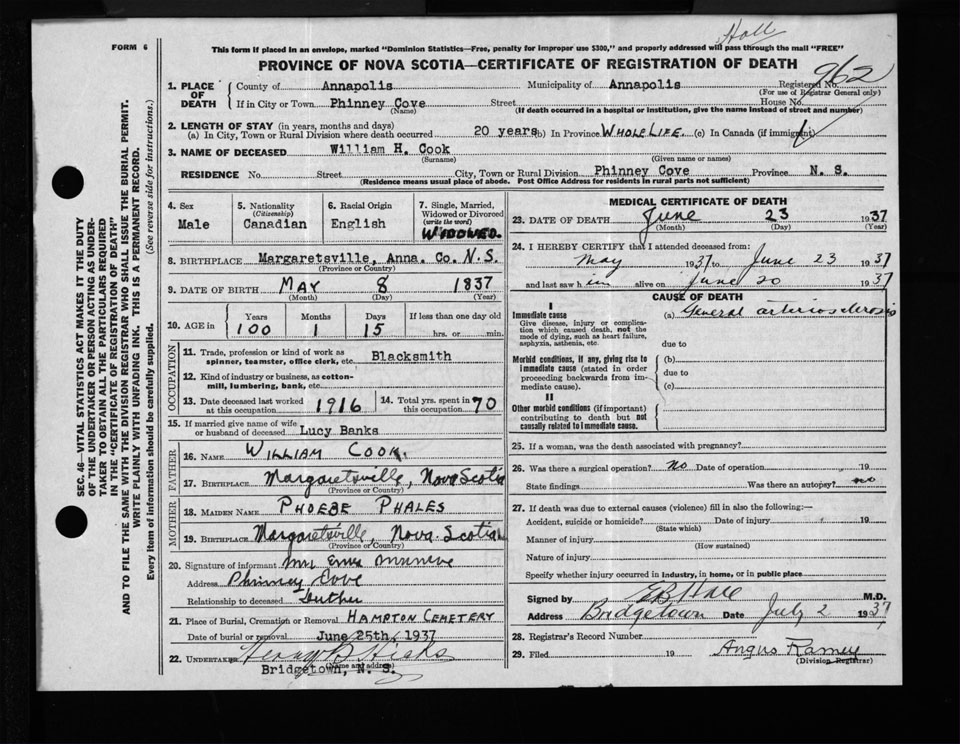 Hall
FORM 6
This form if placed in an envelope, marked "Dominion Statistics—Free, penalty for improper use $300," and properly addressed will pass through the mail "FREE"
PROVINCE OF NOVA SCOTIA—CERTIFICATE OF REGISTRATION OF DEATH
962
1. PLACE OF DEATH County of Annapolis Municipality of Annapolis Registered No.
(For use of Registrar General only)
If in City or Town Phinney Cove Street House No.
(Name) (If death occurred in a hospital or institution, give the name instead of street and number)
2. LENGTH OF STAY (in years, months and days)
(a) In City, Town or Rural Division where death occurred 20 years (b) In Province WHOLE LIFE. (c) In Canada (if immigrant)
3. NAME OF DECEASED William H. Cook
(Surname) (Given name or names)
RESIDENCE No. Street City, Town or Rural Division Phinney Cove Province N. S.
(Residence means usual place of abode. Post Office Address for residents in rural parts not sufficient)
4. Sex 5. Nationality (Citizenship) 6. Racial Origin 7. Single, Married, Widowed or Divorced (write the word)
Male Canadian English WIDOWED.
8. BIRTHPLACE Margaretsville, Anna. Co. N.S.
(Province or Country)
9. DATE OF BIRTH MAY 8 1837
(Month) (Day) (Year)
10. AGE in Years Months Days If less than one day old
100 1 15 hrs. or min.
OCCUPATION
11. Trade, profession or kind of work as spinner, teamster, office clerk, etc. Blacksmith
12. Kind of industry or business, as cotton-mill, lumbering, bank, etc.
13. Date deceased last worked at this occupation 1916 14. Total yrs. spent in this occupation 70
15. If married give name of wife or husband of deceased Lucy Banks
FATHER
16. NAME WILLIAM COOK.
17. BIRTHPLACE Margaretsville, Nova Scotia
(Province or Country)
MOTHER
18. MAIDEN NAME PHOEBE PHALES
19. BIRTHPLACE Margaretsville, Nova Scotia
(Province or Country)
20. Signature of informant Mrs
Address Phinney Cove
Relationship to deceased
21. Place of Burial, Cremation or Removal HAMPTON CEMETERY
Date of burial or removal June 25th, 1937
22. UNDERTAKER Henry B Hicks
(Name and address)
Bridgetown, N. S.
MEDICAL CERTIFICATE OF DEATH
23. DATE OF DEATH June 23 1937
(Month) (Day) (Year)
24. I HEREBY CERTIFY that I attended deceased from:
May 1937 to June 23 1937
and last saw him alive on June 20 1937
CAUSE OF DEATH
I
Immediate cause (a) General arteriosclerosis
Give disease, injury or complication which caused death, not the mode of dying, such as heart failure, asphyxia, asthenia, etc.
due to
Morbid conditions, if any, giving rise to immediate cause (stated in order proceeding backwards from immediate cause).
(b)
due to
(c)
II
Other morbid conditions (if important) contributing to death but not causally related to immediate cause.
25. If a woman, was the death associated with pregnancy?
26. Was there a surgical operation? No Date of operation 19
State findings Was there an autopsy? no
27. If death was due to external causes (violence) fill in also the following:—
Accident, suicide or homicide? Date of injury 19
(State which)
Manner of injury
(How sustained)
Nature of injury
Specify whether injury occurred in industry, in home, or in public place
Signed by M.D.
Address Bridgetown Date July 2 1937
28. Registrar's Record Number
29. Filed 19 Angus Ramey
(Division Registrar)
SEC. 46—VITAL STATISTICS ACT MAKES IT THE DUTY
OF THE UNDERTAKER OR PERSON ACTING AS UNDER-
TAKER TO OBTAIN ALL THE PARTICULARS REQUIRED
IN THE "CERTIFICATE OF REGISTRATION OF DEATH"
AND TO FILE THE SAME WITH THE DIVISION REGISTRAR WHO SHALL ISSUE THE BURIAL PERMIT.
WRITE PLAINLY WITH UNFADING INK. THIS IS A PERMANENT RECORD.
Every item of information should be carefully supplied. (See reverse side for instructions.)